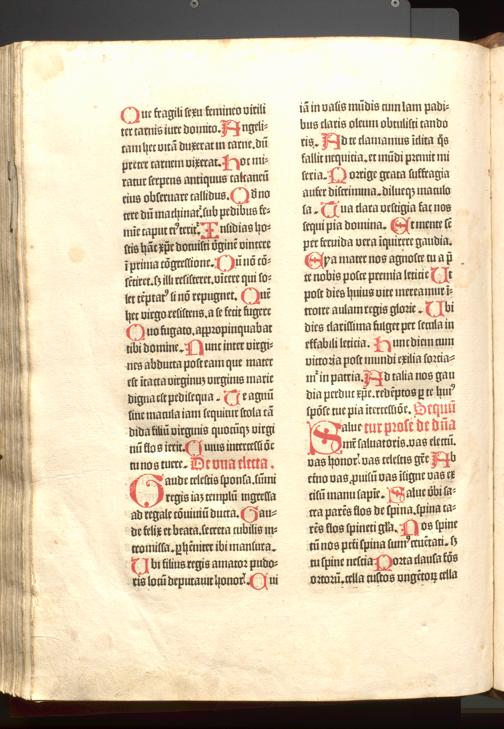 Que fragili sexu femineo virili
ter carnis iure domito. Angeli-
cam hec vitā duxerat in carne, dū
preter carnem vixerat. Hoc mi-
ratur serpens antiquus calcaneū
eius obseruare callidus. Qd no
cere dū machinat᷑ sub pedibus fe-
mie caput ei⁹ terit᷑. Insidias ho-
stis hāc xp̄e docuisti v̓ginē vincere
ī prima cōgressione. Qui nō cō-
sētiret, sʒ illi resisteret, vincere qui so-
let tēptat⁹ si nō repugnet. Quē
hec virgo resistens, a se fecit fugere
Quo fugato, appropinquabat
tibi domine. Nunc inter virgi-
nes abducta post eam que mater
est ītacta virginū virginis marie
digna est pedisequa. Te agnū
sine macula iam sequitur stola cā
dida filiū virginis quocūqʒ virgi
nū flos ierit. Cuius intercessiōe
tu nos tuere. De vna electa.
Gaude celestis sponsa, sūmi
regis iaʒ templū ingressa
ad regale cōuiuiū ducta. Gau-
de felix et beata, secreta cubilis in-
tromissa, ꝑhēniter ibi mansura.
Ubi filius regis amator pudo-
ris locū deputauit honor᷑. Qui
iā in vasis mūdis cum lam padi-
bus claris oleum obtulisti cando
ris. Ad te clamamus īclita q̄s
fallit nequicia, et mūdi premit mi
seria. Porrige grata suffragia
aufer discrimina, dilueqʒ maculo
sa. Tua clara vestigia fac nos
sequi pia domina. Et mente sē
per feruida vera īquirere gaudia.
Era mater nos agnosce tu a p̄
re nobis posce premia leticie Ut
post dies huius vite mereamur ī-
troire aulam regis glorie. Ubi
dies clarissima fulget per secula in
effabili leticia. Hunc diem cum
victoria post mundi exilia sortia-
m᷑ in patria. Ad talia nos gau
dia perduc xp̄e, redēptos p̄ te hui⁹
spōse tue pia ītercessiōe. Sequū
tur prose de dn̄a
Salue
mr̄ saluatoris, vas electū,
vas honor᷑ vas celestis gr̄e Ab
eterno vas, puisū vas īsigne vas ex
cisū manu sapīe. Salue v̓bi sa-
cra parēs flos de spina, spina ca-
rēs flos spineti gl̄a. Nos spine
tū nos pcti spina sum⁹ crucētati, sʒ
tu spine nescia Porta clausa fōs
ortorū, cella custos vngētorʒ cella